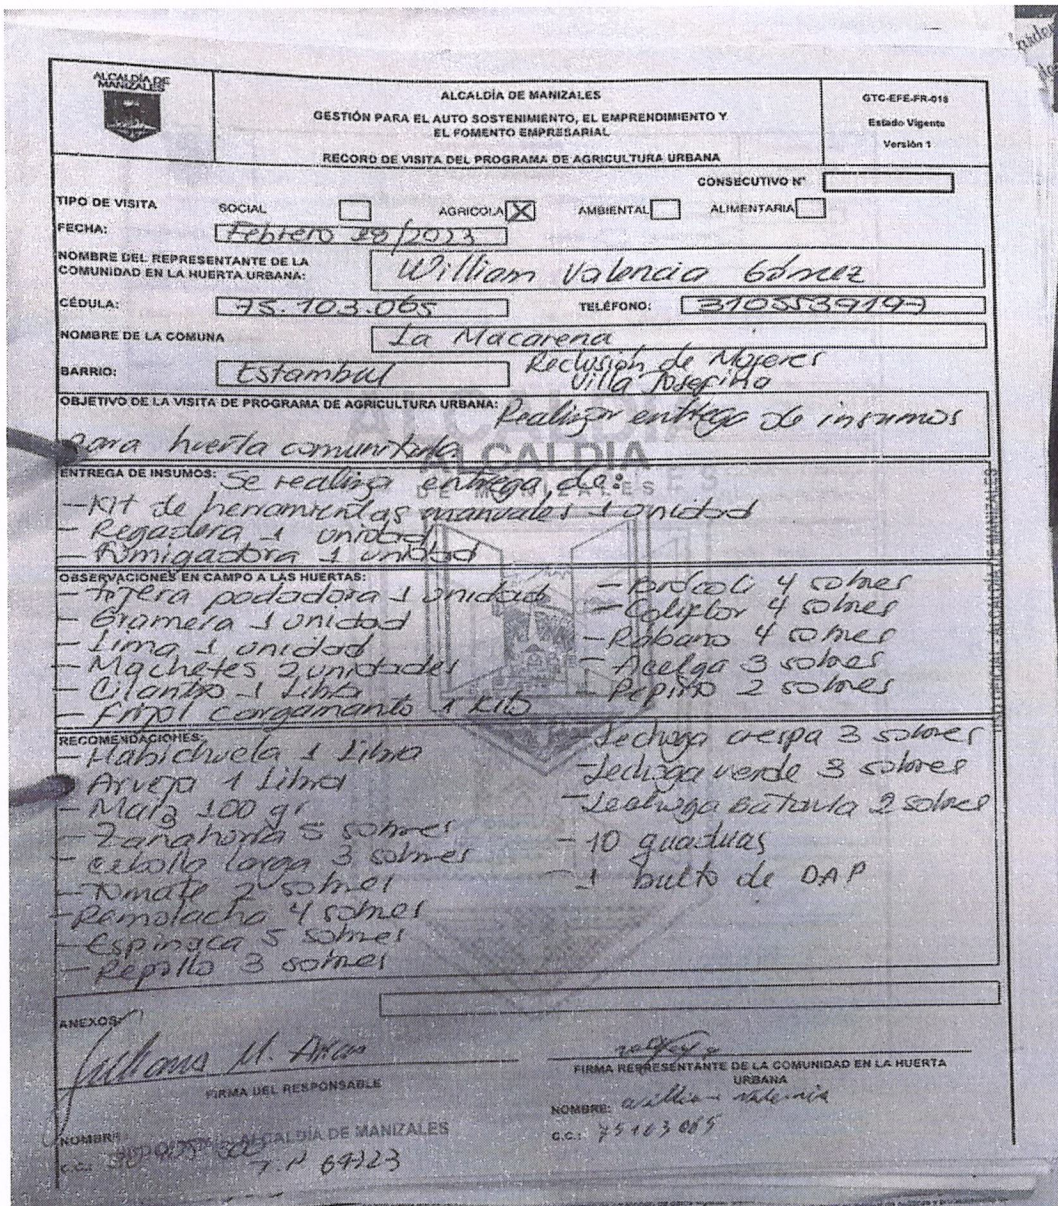 ALCALDÍA DE
MANIZALES
ALCALDÍA DE MANIZALES
GESTIÓN PARA EL AUTO SOSTENIMIENTO, EL EMPRENDIMIENTO Y
EL FOMENTO EMPRESARIAL
RECORD DE VISITA DEL PROGRAMA DE AGRICULTURA URBANA
GTC-EFE-FR-018
Estado Vigente
Versión 1
CONSECUTIVO N°
TIPO DE VISITA SOCIAL AGRICOLA X AMBIENTAL ALIMENTARIA
FECHA: Febrero 28/2023
NOMBRE DEL REPRESENTANTE DE LA
COMUNIDAD EN LA HUERTA URBANA: William Valencia Gómez
CÉDULA: 75.103.065 TELÉFONO: 3105539197
NOMBRE DE LA COMUNA La Macarena
BARRIO: Estambul Reclusión de Mujeres
Villa Josefina
OBJETIVO DE LA VISITA DE PROGRAMA DE AGRICULTURA URBANA: Realizar entrega de insumos
para huerta comunitaria
ALCALDÍA
DE MANIZALES
ENTREGA DE INSUMOS: Se realiza entrega de:
- Kit de herramientas manuales 1 unidad
- Regadera 1 unidad
- Fumigadora 1 unidad
OBSERVACIONES EN CAMPO A LAS HUERTAS:
- Tijera podadora 1 unidad
- Gramera 1 unidad
- Lima 1 unidad
- Machetes 2 unidades
- Cilantro 1 Libra
- Frijol Cargamanto 1 Kilo
- Brócoli 4 sobres
- Coliflor 4 sobres
- Rábano 4 sobres
- Acelga 3 sobres
- Pepino 2 sobres
RECOMENDACIONES:
- Habichuela 1 Libra
- Arveja 1 Libra
- Maíz 100 gr
- Zanahoria 5 sobres
- Cebolla larga 3 sobres
- Tomate 2 sobres
- Remolacha 4 sobres
- Espinaca 5 sobres
- Repollo 3 sobres
- Lechuga crespa 3 sobres
- Lechuga verde 3 sobres
- Lechuga Batavia 2 sobres
- 10 guaduas
- 1 bulto de DAP
- ALCALDÍA DE MANIZALES
ANEXOS:
Juliana M.
FIRMA DEL RESPONSABLE
FIRMA REPRESENTANTE DE LA COMUNIDAD EN LA HUERTA
URBANA
NOMBRE: William Valencia
C.C.: 75103065
NOMBRE:
ALCALDÍA DE MANIZALES
C.C.:
T.P 69323